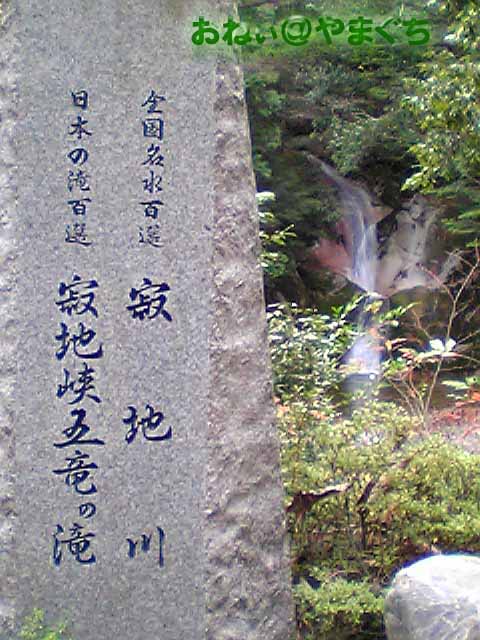 おねぃ@やまぐち
全国名水百選
寂地川
日本の滝百選
寂地峡五竜の滝